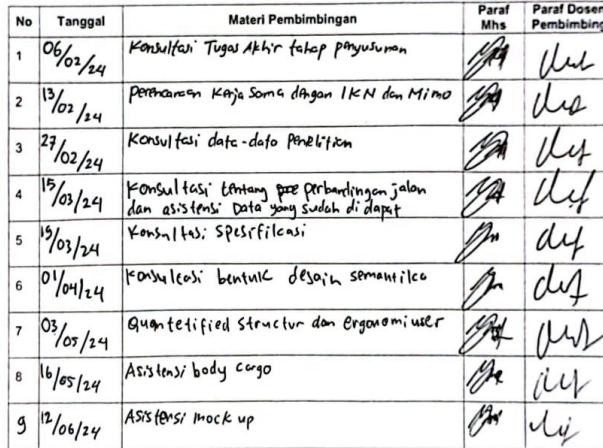 No Tanggal Materi Pembimbingan Paraf Mhs Paraf Dosen Pembimbing
1 06/02/24 Konsultasi Tugas Akhir tahap penyusunan
2 13/02/24 perencanaan Kerja Sama dengan IKN dan Mimo
3 27/02/24 Konsultasi data-data Penelitian
4 15/03/24 Konsultasi tentang perbandingan jalan
dan asistensi Data yang sudah di dapat
5 19/03/24 Konsultasi Spesifikasi
6 01/04/24 Konsultasi bentuk desain semantika
7 03/05/24 Quantetified Structur dan ergonomi user
8 16/05/24 Asistensi body cargo
9 12/06/24 Asistensi mock up